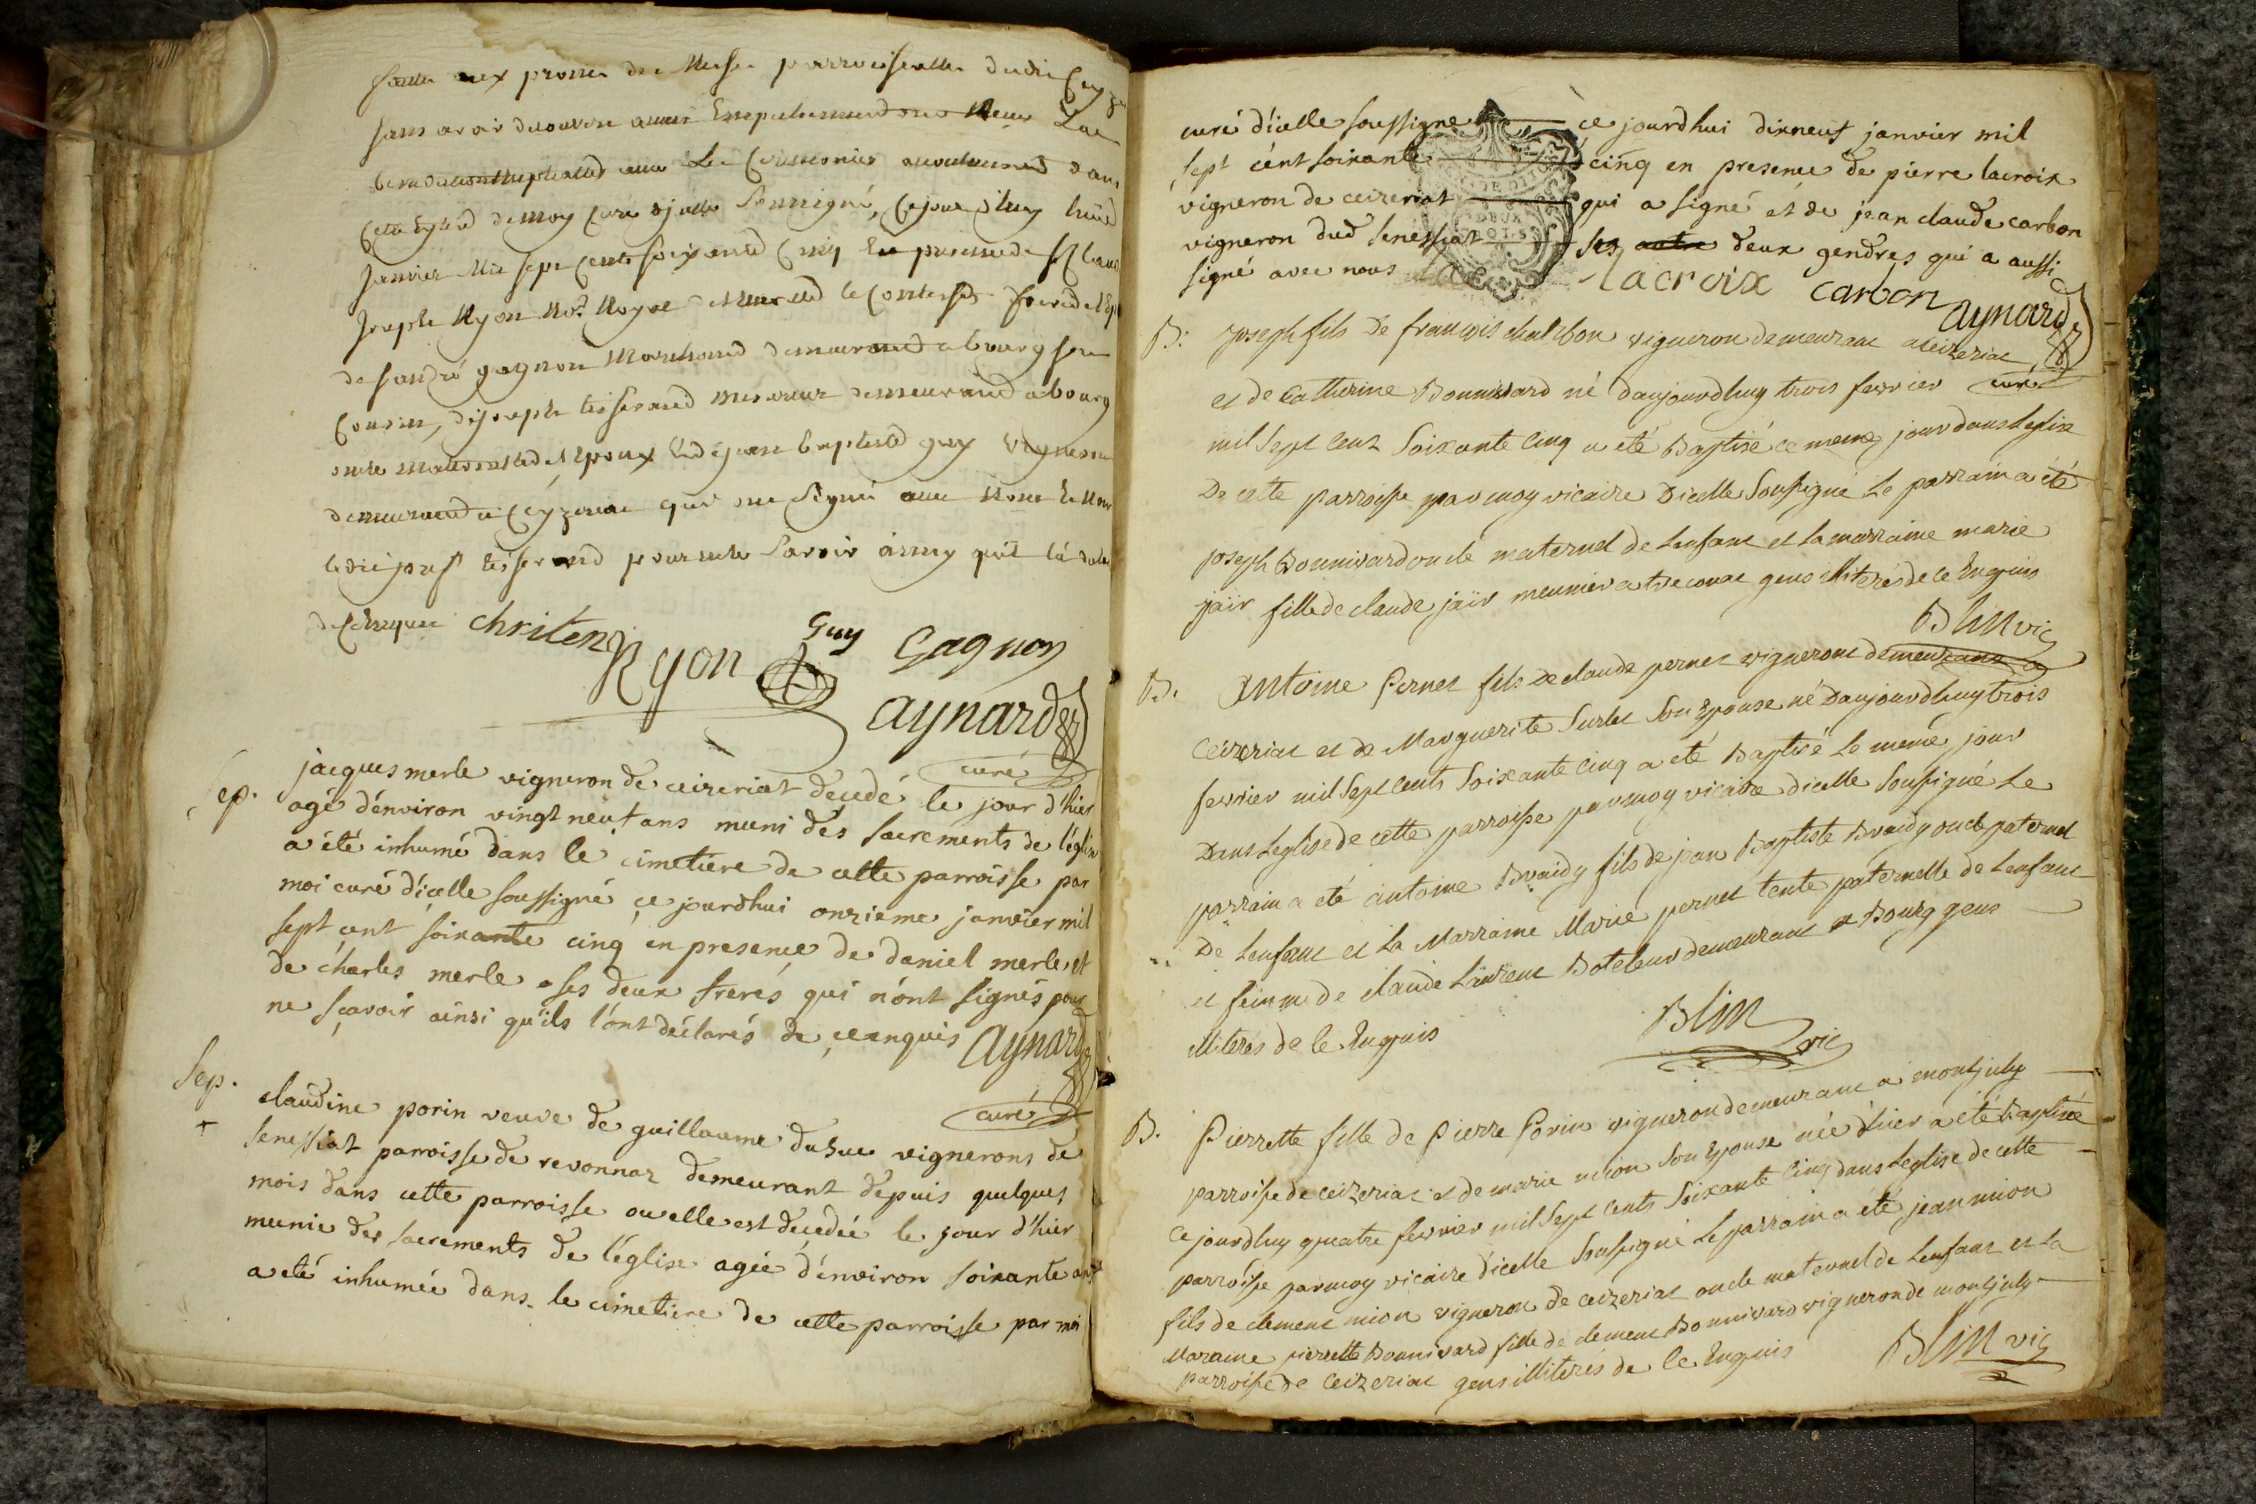 aux prones de Messe parroissialle dudit
sans avoir decouvert aucun Empechement
les Ceremonies accoutumées dans
cette Eglise de moy curé djcelle soussigné, cejourd'huy huit
janvier Mil sept cents soixante Cinq En presence de
joseph Ryon No.re Royal
de gagnon Marchand demeurant a bourg son
Cousin, de joseph tisserand demeurant a bourg
oncle maternel de l'Epoux Et de jean baptiste guy vigneron
demeurant a Ceyzeriat qui ont signé avec nous
ledit josph tisserand pour ne le savoir ainsy qu'il l'a declaré
de ce Enquis christen
Ryon Guy Gagnon
Aynard
curé
Sep. jacques merle vigneron de ceizeriat decedé le jour d'hier
agé d'environ vingt neuf ans muni des sacrements de l'église
a été inhumé dans le cimetiere de cette parroisse par
moi curé d'icelle soussigné ce jourdhui onzieme janvier mil
sept cent soixante cinq en presence de daniel merle, et
de charles merle ses deux freres qui n'ont signés pour
ne sçavoir ainsi qu'ils l'ont déclarés de ce enquis Aynard
curé
Sep. claudine porin veuve de guillaume dusuc vignerons de
senessiat parroisse de revonnaz demeurant depuis quelques
mois dans cette parroisse ou elle est decedée le jour d'hier
munie des sacrements de l'église agée d'environ soixante ans
a eté inhumée dans le cimetiere de cette parroisse par moi
curé d'icelle soussigné ce jourdhui dixneuf janvier mil
sept cent soixante cinq en presence de pierre lacroix
vigneron de ceizeriat qui a signé et de jean claude carbon
vigneron dud senessiat ses autre deux gendres qui a aussi
signé avec nous lacroix carbon Aynard
curé
B. joseph fils de françois chalibon vigneron demeurant a ceizeriat
et de Catherine Bonnivard né d'aujourdhuy trois fevrier
mil sept cent soixante cinq a été Baptisé ce meme jour dans leglise
De cette parroisse par moy vicaire Dicelle Soussigné Le parrain a été
joseph Bonnivard oncle maternel de Lenfant et la marraine marie
jaïr fille de claude jaïr meunier a treconat gens illiterés de ce Enquis
Blin vic
B. Antoine Pernet fils de claude pernet vignerons demeurans a
Ceizeriat et de Marguerite Surlet Son Epouse né Daujourdhuy trois
fevrier mil Sept Cents Soixante Cinq a eté Baptisé Le meme jour
Dans Leglise de cette parroisse par moy vicaire dicelle Soussigné Le
parrain a eté antoine Braidy fils de jean Baptiste Braidy oncle paternel
De Lenfant et la Marraine Marie pernet tente paternelle de Lenfant
et femme de claude Laurent Boteleur demeurant a Bourg gens
illiterés de Ce Enquis
Blin vic
B. Pierrette fille de Pierre Porin vigneron demeurant a montjuly
parroisse de ceizeriat et de marie mion Son Epouse née d'hier a été Baptisée
Cejourdhuy quatre fevrier mil Sept Cents Soixante Cinq dans Leglise de cette
parroisse par moy vicaire d'icelle Soussigné Le parrain a été jean mion
fils de clement mion vigneron de ceizeriat oncle maternel de Lenfant et La
Maraine pierrette Bonnivard fille de clement Bonnivard vigneron de montjuly
parroisse de Ceizeriat gens illiterés de Ce Enquis
Blin vic